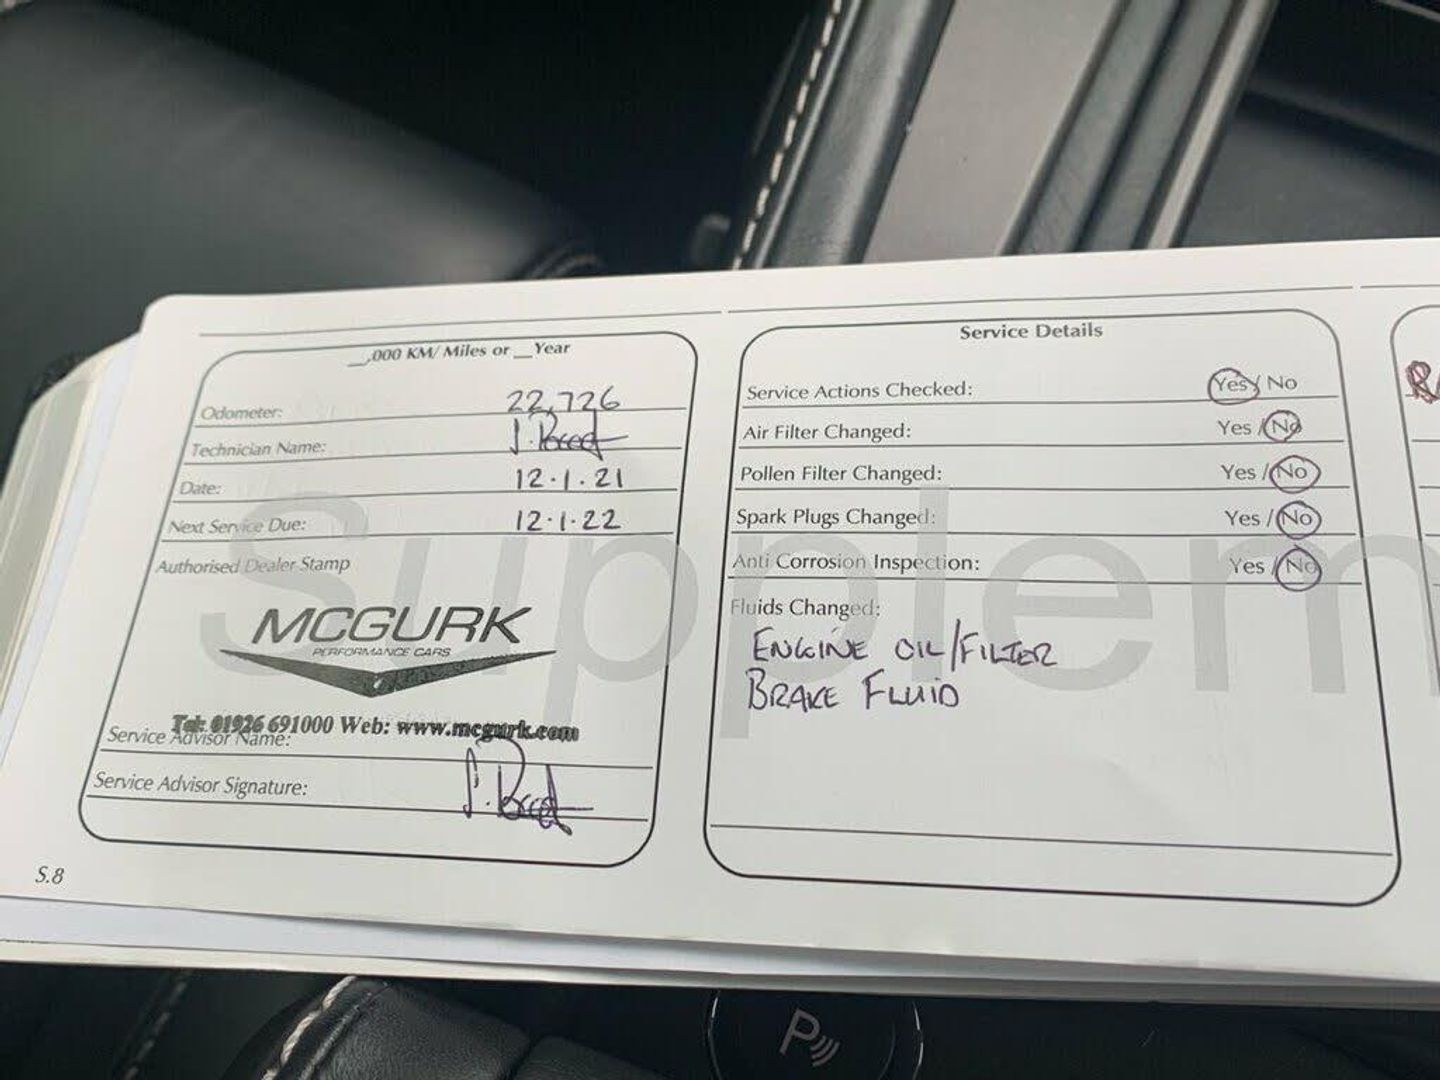 __,000 KM/ Miles or __Year
Odometer: 22,726
Technician Name:
Date: 12.1.21
Next Service Due: 12.1.22
Authorised Dealer Stamp
MCGURK
PERFORMANCE CARS
Tel: 01926 691000 Web: www.mcgurk.com
Service Advisor Name:
Service Advisor Signature:
S.8
Service Details
Service Actions Checked: Yes / No
Air Filter Changed: Yes / No
Pollen Filter Changed: Yes / No
Spark Plugs Changed: Yes / No
Anti Corrosion Inspection: Yes / No
Fluids Changed:
ENGINE OIL/FILTER
BRAKE FLUID
Supplem
P